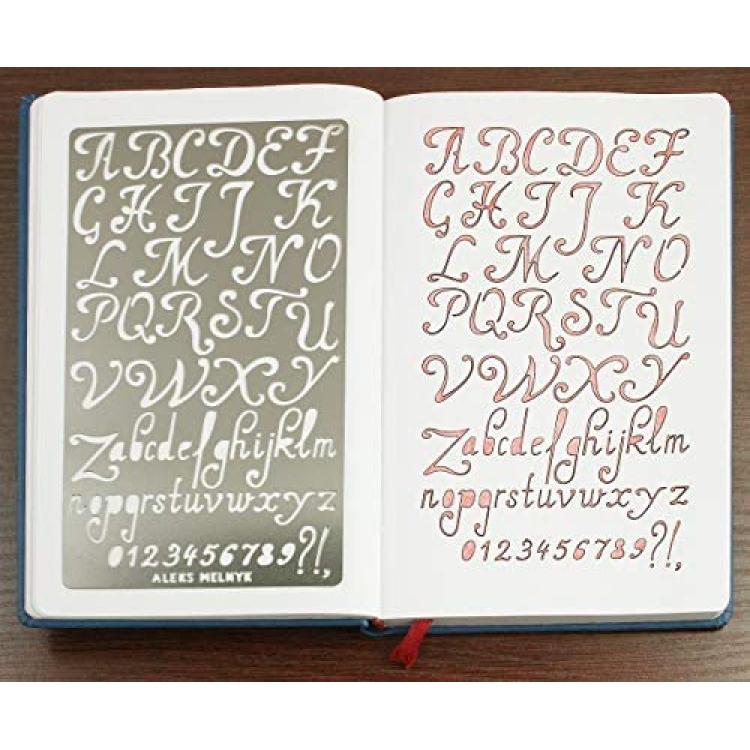 ABCDEF
GHIJK
LMNO
PQRSTU
VWXY
Zabcdefghijklm
nopqrstuvwxyz
0123456789?!,
ALEKS MELNYK
ABCDEF
GHIJK
LMNO
PQRSTU
VWXY
Zabcdefghijklm
nopqrstuvwxyz
0123456789?!,